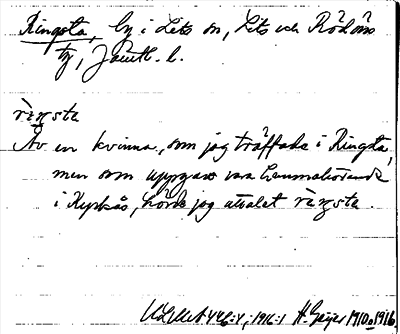 Ringsta, by i Lits sn, Lits och Rödöns
tg, Jämtl. l.
ràŋsta
Av en kvinna, som jag träffade i Ringsta,
men som uppgavs vara hemmahörande
i Kyrkås, hörde jag uttalet ràŋsta.
446:4, 1916:1 H. Geijer 1910o1916